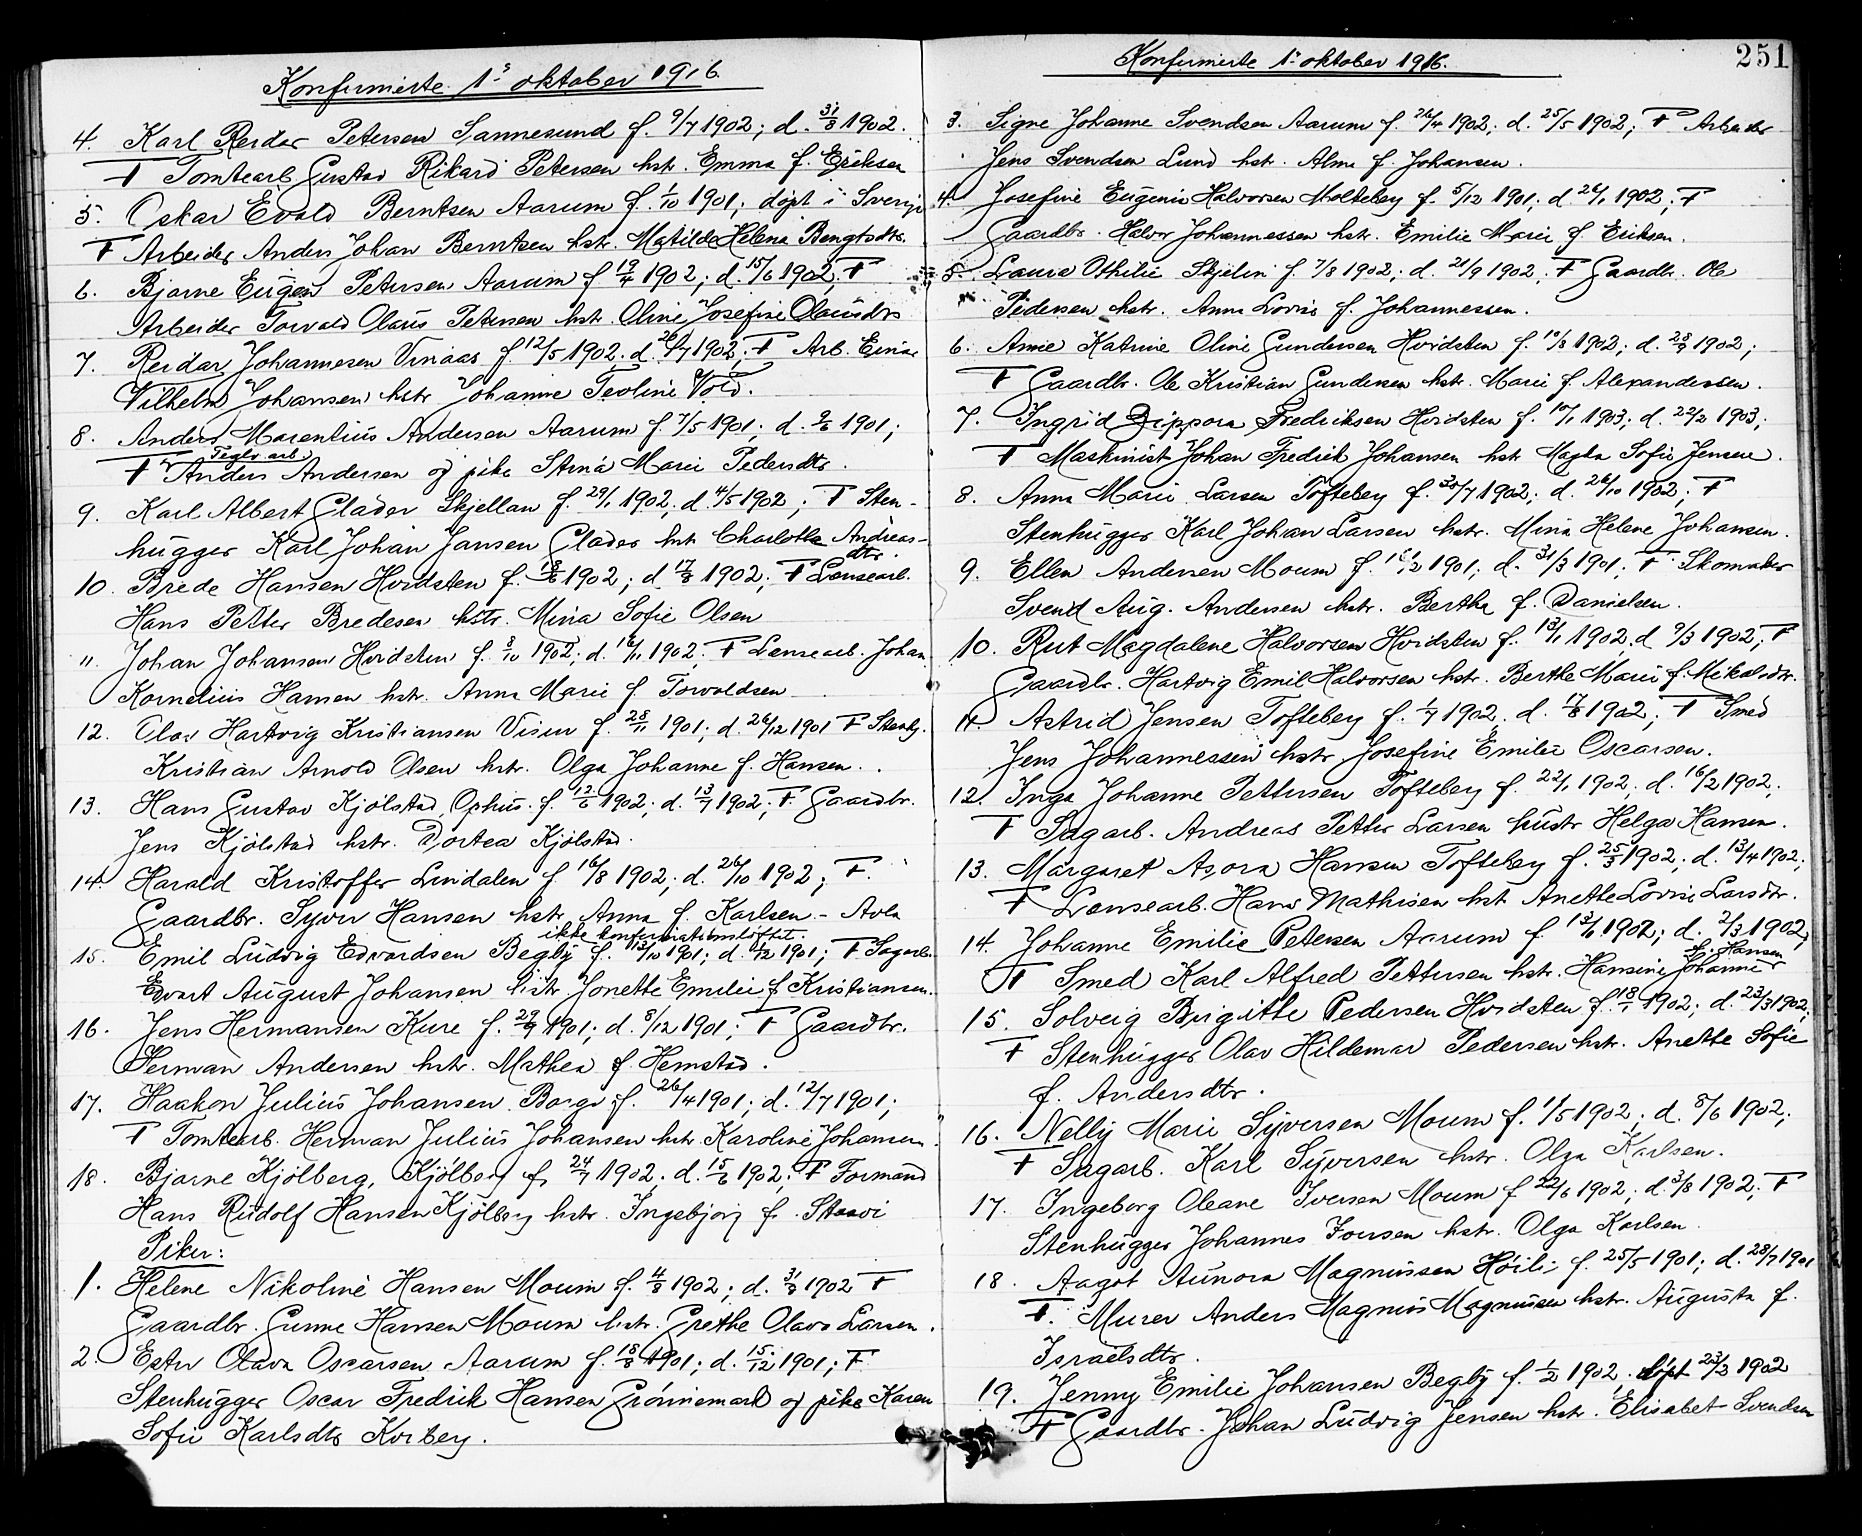 Konfirmerte 1ʳ oktober 1916.
4. Karl Reidar Petersen Sannesund f. 9/7 1902; d. 31/8 1902.
F Tomtearb. Gustav Rikard Petersen hstr. Emma f. Eriksen
5. Oskar Evald Berntsen Aarum f. 1/10 1901; døpt i Sverige
F Arbeider Anders Johan Berntsen hstr. Matilde Helena Bengtsdtr.
6. Bjarne Eugen Petersen Aarum f 19/4 1902; d. 15/6 1902; F
Arbeider Torvald Olaus Petersen hstr. Oline Josefine Olausdtr
7. Reidar Johannesen Vinaas f. 12/5 1902. d. 20/7 1902; F Arb. Einar
Vilhelm Johansen hstr Johanne Teoline Vold.
8. Anders Marentius Andersen Aarum f 7/5 1901; d. 9/6 1901;
Teglv. arb.
F Anders Andersen og pike Stina Marie Pedersdtr.
9. Karl Albert Glader Skjellan f. 29/1 1902, d. 4/5 1902; F Sten-
hugger Karl Johan Jansen Glader hstr Charlotte Andreas-
dtr.
10. Brede Hansen Hvidsten f. 18/6 1902; d 17/8 1902; F Lensearb.
Hans Petter Bredesen hstr. Mina Sofie Olsen
11. Johan Johansen Hvidsten f. 8/10 1902; d. 16/11 1902. F Lensearb. Johan
Kornelius Hansen hstr. Anna Marie f. Torvaldsen
12. Olav Hartvig Kristiansen Visur f. 28/11 1901; d. 26/12 1901 F Stenh.
Kristian Arnold Olsen hstr. Olga Johanne f. Hansen.
13. Hans Gustav Kjølstad, Ophus. f. 12/6 1902; d. 13/7 1902; F. Gaardbr.
Jens Kjølstad hstr. Dortea Kjølstad.
14. Harald Kristoffer Lindalen f. 16/8 1902; d. 26/10 1902; F.
Gaardbr. Syver Hansen hstr. Anna f. Karlsen. - Avla
ikke konfirmationsløftet.
15. Emil Ludvig Edvardsen Begby f. 13/10 1901; d. 1/12 1901; F Sagarb.
Edvart August Johansen hstr. Jonette Emilie f Kristiansen.
16. Jens Hermansen Kure f. 29/9 1901; d. 8/12 1901; F Gaardbr.
Herman Andersen hstr. Mathea f. Hemstad.
17. Haakon Julius Johansen Borge f. 26/4 1901; d. 12/7 1901;
F Tomtearb. Herman Julius Johansen hstr. Karoline Johansen
18. Bjarne Kjølberg, Kjølberg f. 24/4 1902; d. 15/6 1902; F Formand
Hans Rudolf Hansen Kjølberg hstr. Ingebjørg f.
Piker:
1. Helene Nikoline Hansen Moum f. 4/8 1902; d. 31/8 1902 F
Gaardbr. Gunne Hansen Moum hstr. Grethe Olava Larsen.
2. Ester Olava Oscarsen Aarum f. 18/8 1901; d. 15/12 1901; F.
Stenhugger Oscar Fredrik Hansen Grønnemark og pike Karen
Sofie Karlsdtr Korberg.
Konfirmerte 1ʳ oktober 1916.
251
3. Signe Johanne Svendsen Aarum f. 26/4 1902; d. 25/5 1902; F Arbeider
Jens Svendsen Lund hstr. Alma f. Johansen.
4. Josefine Eugenie Halvorsen Molteberg f. 5/12 1901; d 26/1 1902; F
Gaardbr. Halvor Johannessen hstr. Emilie Marie f. Eriksen.
5. Laura Othilie Skjelin f. 7/8 1902; d. 21/9 1902. F Gaardbr. Ole
Pedersen hstr. Anna Lovise f. Johannessen.
6. Anne Katrine Oline Gundersen Hvidsten f. 10/8 1902; d. 28/9 1902;
F Gaardbr. Ole Kristian Gundersen hstr. Marie f. Alexandersen.
7. Ingrid Zippora Fredriksen Hvidsten f. 10/1 1903; d. 22/2 1903;
F Maskinist Johan Fredrik Johansen hstr Magda Sofie Jensen.
8. Anna Marie Larsen Tofteberg f. 30/7 1902; d. 26/10 1902; F
Stenhugger Karl Johan Larsen hstr. Mina Helene Johansen.
9. Ellen Andersen Moum f. 1901; d. 31/3 1901; F Skomaker
Svend Aug. Andersen hstr. Bertha f. Danielsen.
10. Rut Magdalene Halvorsen Hvidsten f. 13/1 1902; d 9/3 1902; F
Gaardbr. Hartvig Emil Halvorsen hstr. Berthe Marie f. Mikalsdtr.
11. Astrid Jensen Tofteberg f. 1/7 1902. d. 17/8 1902; F Smed
Jens Johannessen hstr. Josefine Emilie Oscarsen.
12. Inga Johanne Pettersen Tofteberg f. 22/1 1902. d. 16/2 1902;
F Sagarb. Andreas Petter Larsen hustr Helga Hansen.
13. Margaret Azora Hansen Tofteberg f. 25/3 1902; d. 13/4 1902;
F Lensearb. Hans Mathisen hst Anette Lovise Larsdtr.
14. Johanne Emilie Petersen Aarum f. 13/1 1902; d. 2/3 1902;
f. Hansen
F Smed Karl Alfred Pettersen hstr. Hansine Johanne
15. Solveig Birgitte Pedersen Hvidsten f. 18/1 1902; d. 23/3 1902;
F Stenhugger Olav Hildemar Pedersen hstr. Anette Sofie
f. Andersdtr.
16. Nelly Marie Syversen Moum f. 1/5 1902; d. 8/6 1902;
F Sagarb. Karl Syversen hstr. Olga Karlsen.
17. Ingeborg Oleane Iversen Moum f 22/6 1902; d. 3/8 1902; F
Stenhugger Johannes Iversen hstr. Olga Karlsen.
18. Aagot Aunora Magnussen Høili f. 25/5 1901; d. 28/7 1901
F. Murer Anders Magnus Magnussen hstr. Augusta f.
Israelsdtr.
19. Jenny Emilie Johansen Begby f. 1/2 1902. døpt 23/3 1902
F Gaardbr. Johan Ludvig Jensen hstr. Elisabet Svendsen